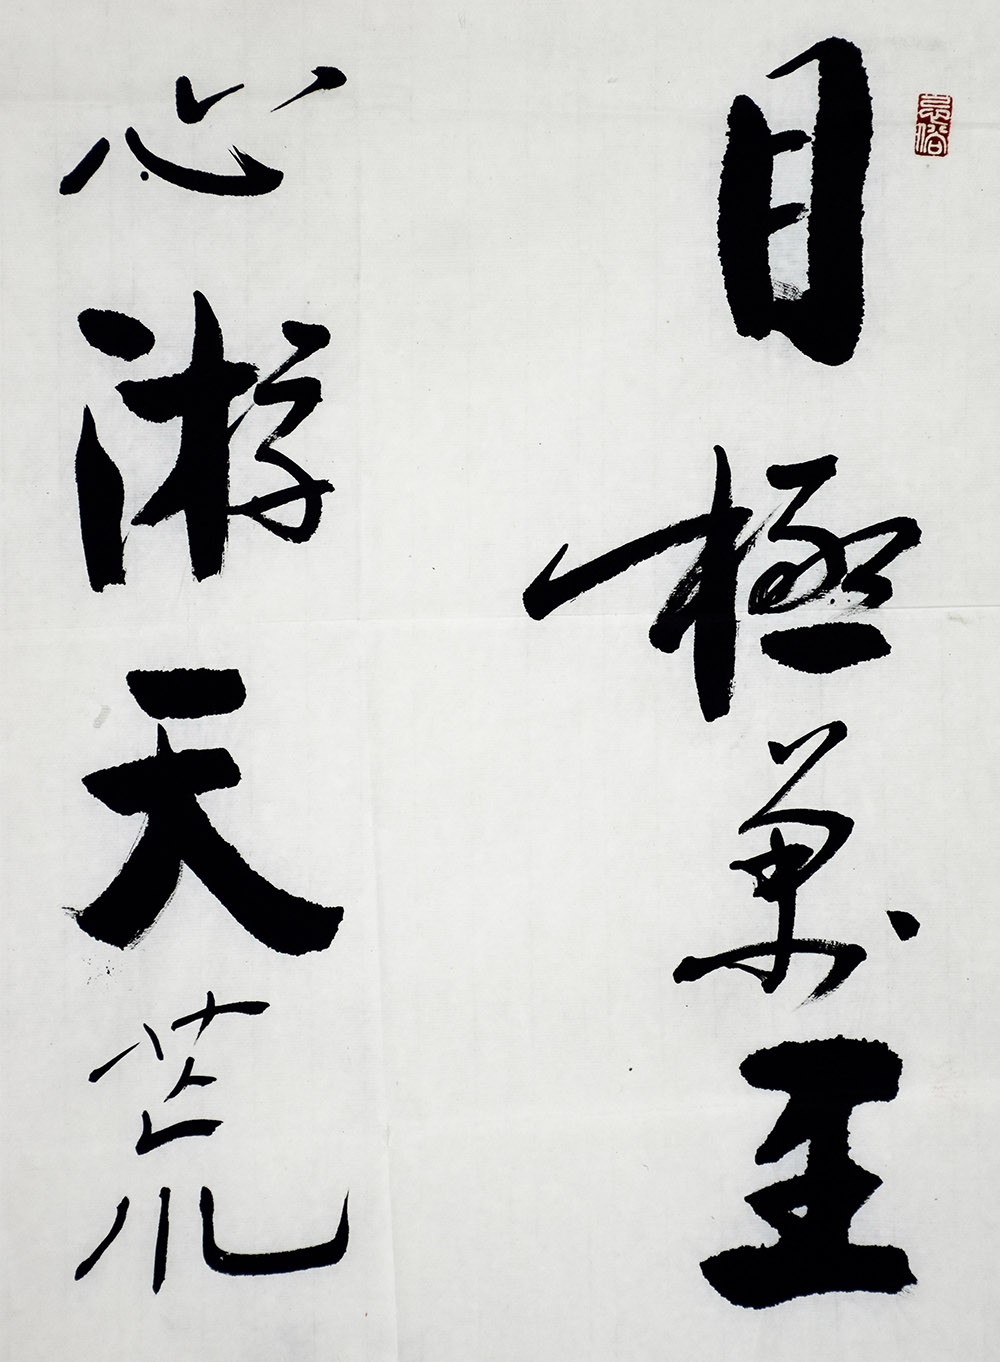 目極萬里
心游天荒